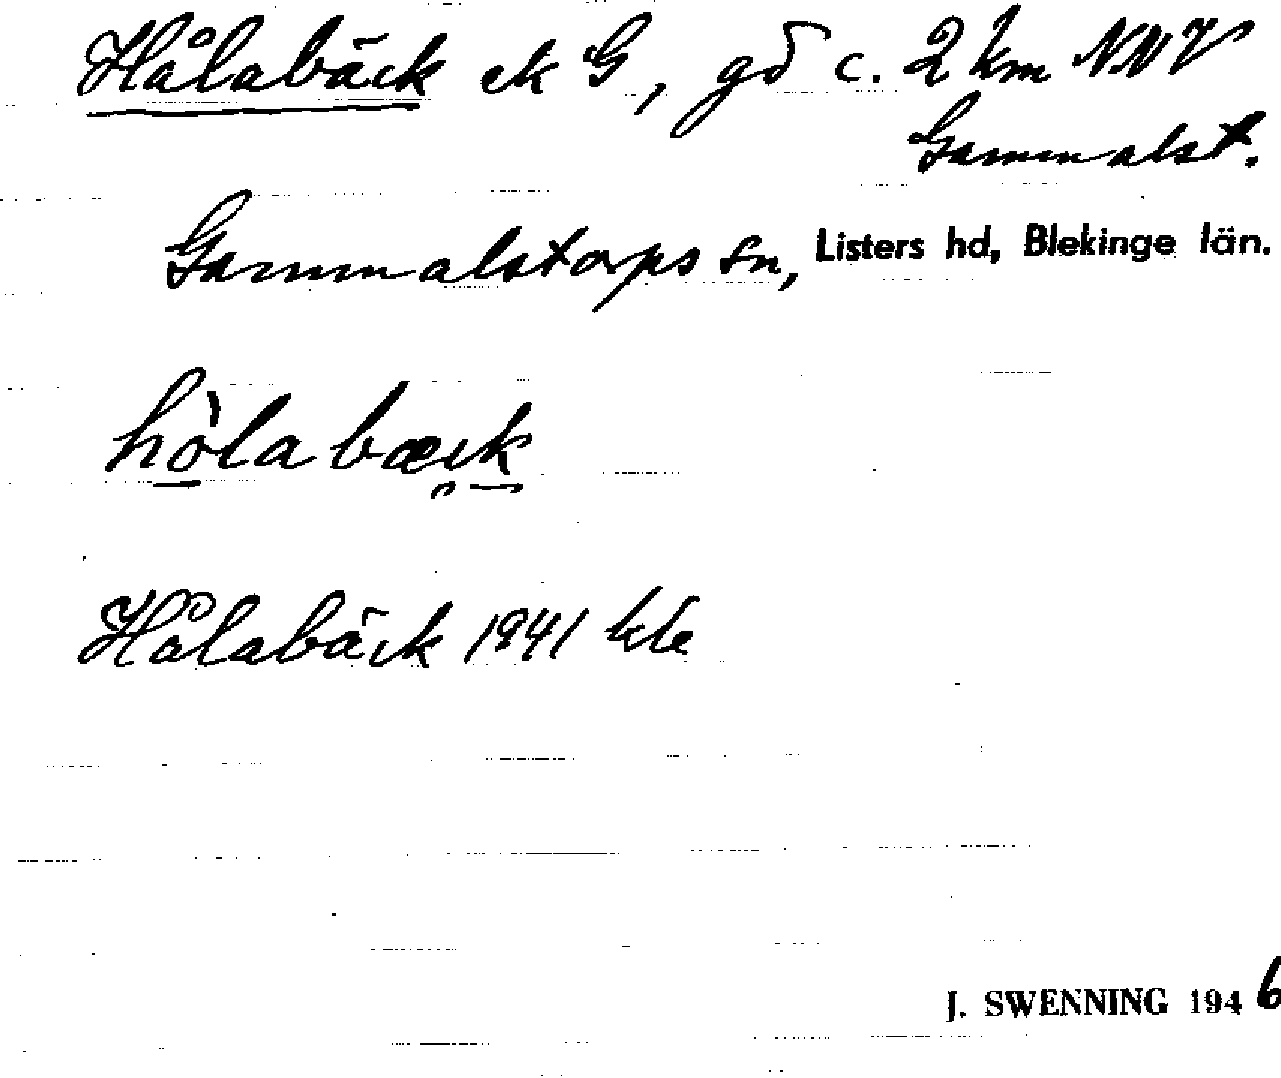 Hålabäck ek G, gd c. 2 km NNV
Gammalst.
Gammalstorps sn, Listers hd, Blekinge län.
hòlabæck
Hålabäck 1941 kle
J. SWENNING 1946